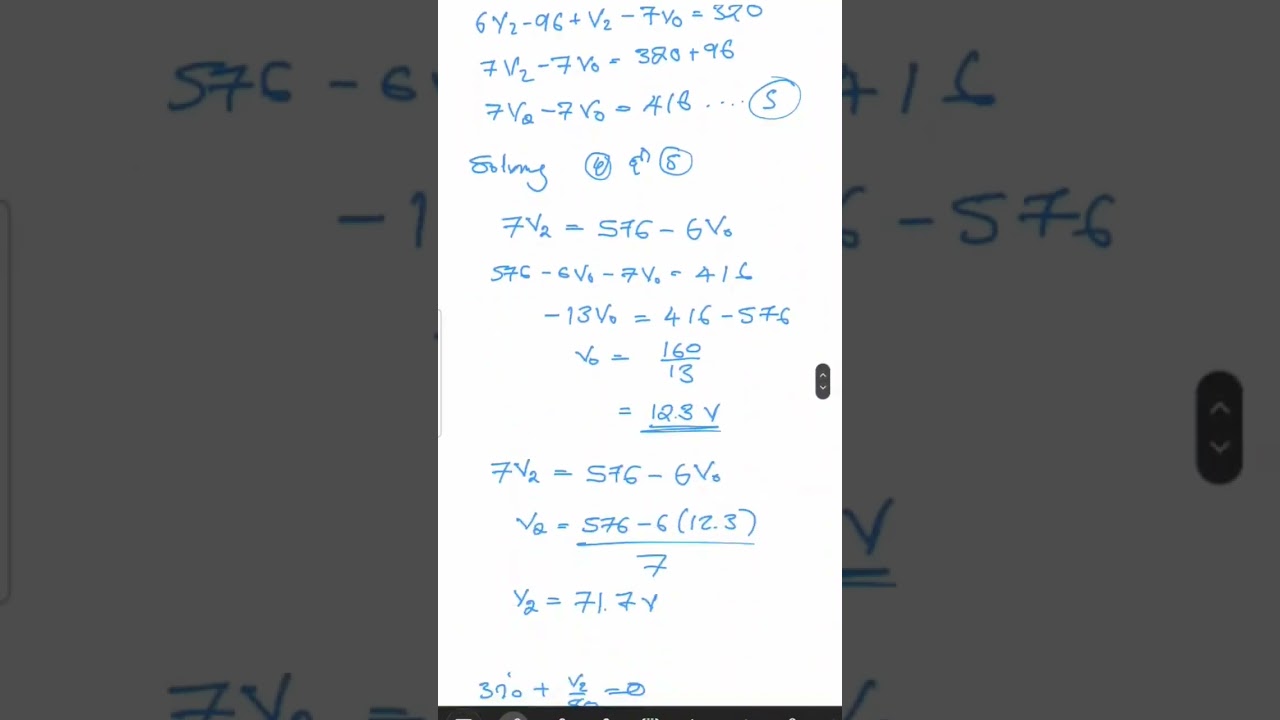 6V₂ - 96 + V₂ - 7V₀ = 320
7V₂ - 7V₀ = 320 + 96
7V₂ - 7V₀ = 416 .... ⑤
Solving ④ & ⑤
7V₂ = 576 - 6V₀
576 - 6V₀ - 7V₀ = 416
-13V₀ = 416 - 576
V₀ = 160/13
= 12.3 V
7V₂ = 576 - 6V₀
V₂ = 576 - 6(12.3)
7
V₂ = 71.7V
3i₀ + V₂/80 = 0